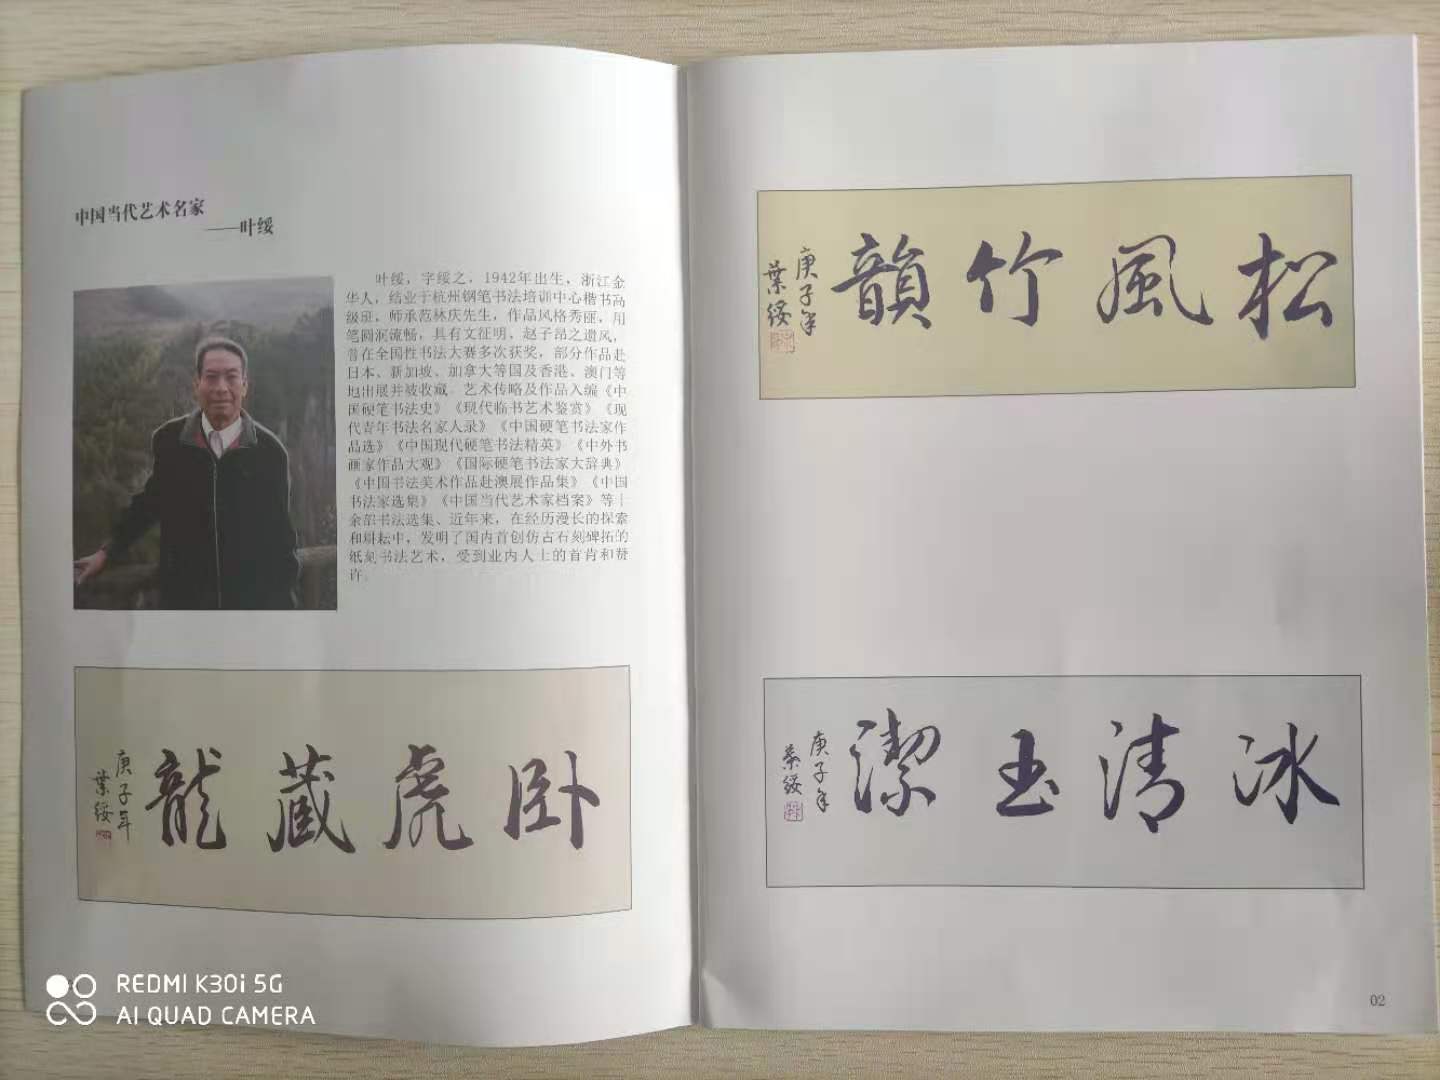 中国当代艺术名家
——叶绥
叶绥，字绥之，1942年出生，浙江金
华人，结业于杭州钢笔书法培训中心楷书高
级班，师承范林庆先生，作品风格秀丽，用
笔圆润流畅，具有文征明、赵子昂之遗风，
曾在全国性书法大赛多次获奖，部分作品赴
日本、新加坡、加拿大等国及香港、澳门等
地出展并被收藏。艺术传略及作品入编《中
国硬笔书法史》《现代临书艺术鉴赏》《现
代青年书法名家人录》《中国硬笔书法家作
品选》《中国现代硬笔书法精英》《中外书
画家作品大观》《国际硬笔书法家大辞典》
《中国书法美术作品赴澳展作品集》《中国
书法家选集》《中国当代艺术家档案》等十
余部书法选集、近年来，在经历漫长的探索
和耕耘中，发明了国内首创仿古石刻碑拓的
纸刻书法艺术，受到业内人士的首肯和赞
许。
卧虎藏龍
庚子年
葉绥
松風竹韻
庚子年
葉绥
冰清玉潔
庚子年
葉绥
02
REDMI K30i 5G
AI QUAD CAMERA